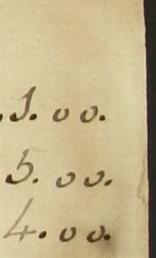 .1.00.
5.00.
4.00.